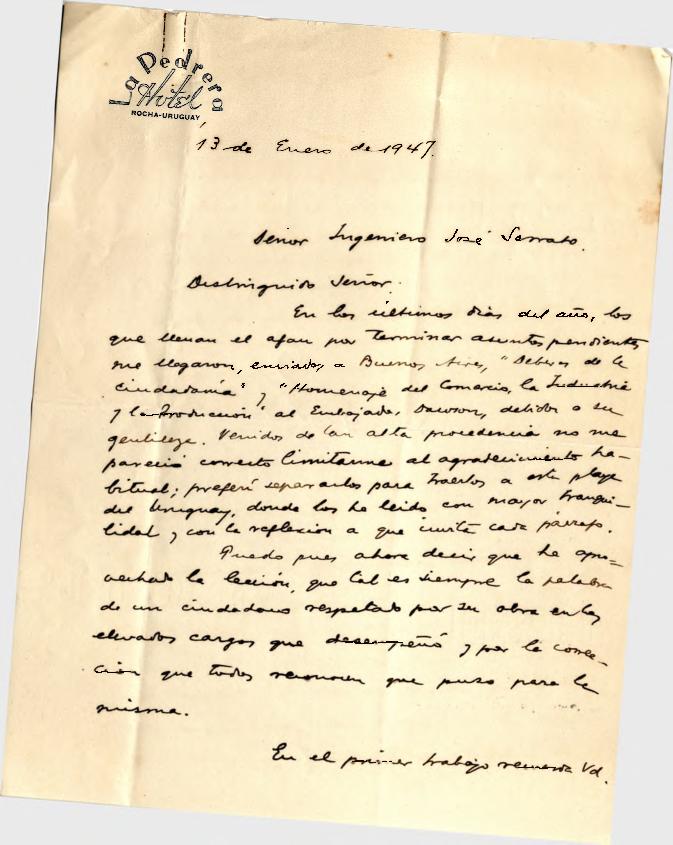 La Pedrera
Hotel
ROCHA-URUGUAY
13 de Enero de 1947.
Señor Ingeniero José Serrato.
Distinguido Señor.
En los últimos días del año, los
que llenan el afan por terminar asuntos pendientes
me llegaron, enviados a Buenos Aires, "Deberes de la
ciudadanía" y "Homenaje del Comercio, la Industria
y la Producción" al Embajador Dawson, debidos a su
gentileza. Venidos de tan alta procedencia no me
pareció correcto limitarme al agradecimiento ha-
bitual; preferí separarlos para traerlos a esta playa
del Uruguay, donde los he leido con mayor tranqui-
lidad y con la reflexion a que invita cada párrafo.
Puedo pues ahora decir que he apro-
vechado la lección, que tal es siempre la palabra
de un ciudadano respetado por su obra en los
elevados cargos que desempeñó y por la correc-
ción que todos reconocen que puso para la
misma.
En el primer trabajo recuerda Vd.